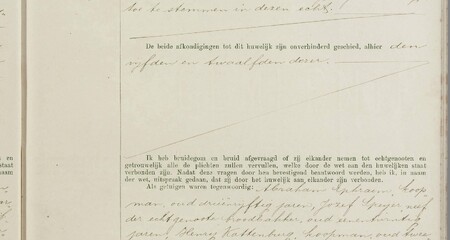 toe te stemmen in dezen echt.
De beide afkondigingen tot dit huwelijk zijn onverhinderd geschied, alhier den
vyfden en twaalfden dezer.
Ik heb bruidegom en bruid afgevraagd of zij elkander nemen tot echtgenooten en
getrouwelijk alle de plichten zullen vervullen, welke door de wet aan den huwelijken staat
verbonden zijn. Nadat deze vragen door hen bevestigend beantwoord werden, heb ik, in naam
der wet, uitspraak gedaan, dat zij door het huwelijk aan elkander zijn verbonden.
Als getuigen waren tegenwoordig: Abraham Ephraim, koop
man, oud drieenvyftig jaren, Jozef Speyer, neef
der echtgenoote, handelaar, oud
jaren, Henry Kattenburg, koopman, oud twee
en
staat
naam